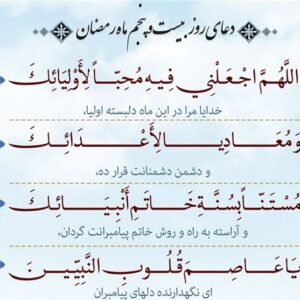 دعای روز بیست و پنجم ماه رمضان
اللَّهُمَّ اجْعَلْنِي فِيهِ مُحِبّاً لِأَوْلِيَائِكَ
خدایا مرا در این ماه دلبسته اولیا،
وَمُعَادِياً لِأَعْدَائِكَ
و دشمن دشمنانت قرار ده،
مُسْتَنّاً بِسُنَّةِ خَاتَمِ أَنْبِيَائِكَ
و آراسته به راه و روش خاتم پیامبرانت گردان،
يَا عَاصِمَ قُلُوبِ النَّبِيِّينَ
ای نگهدارنده دلهای پیامبران